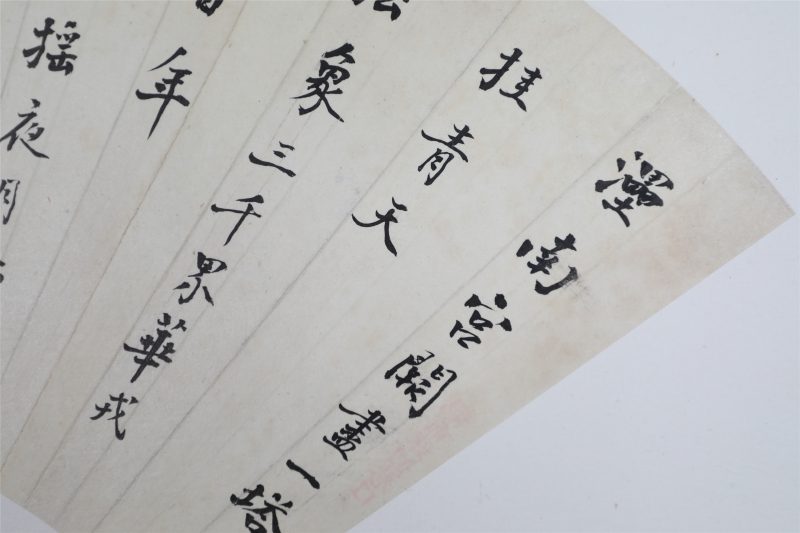 灅南宮闕盡一塔
挂青天
象三千界華戎
年
搖夜